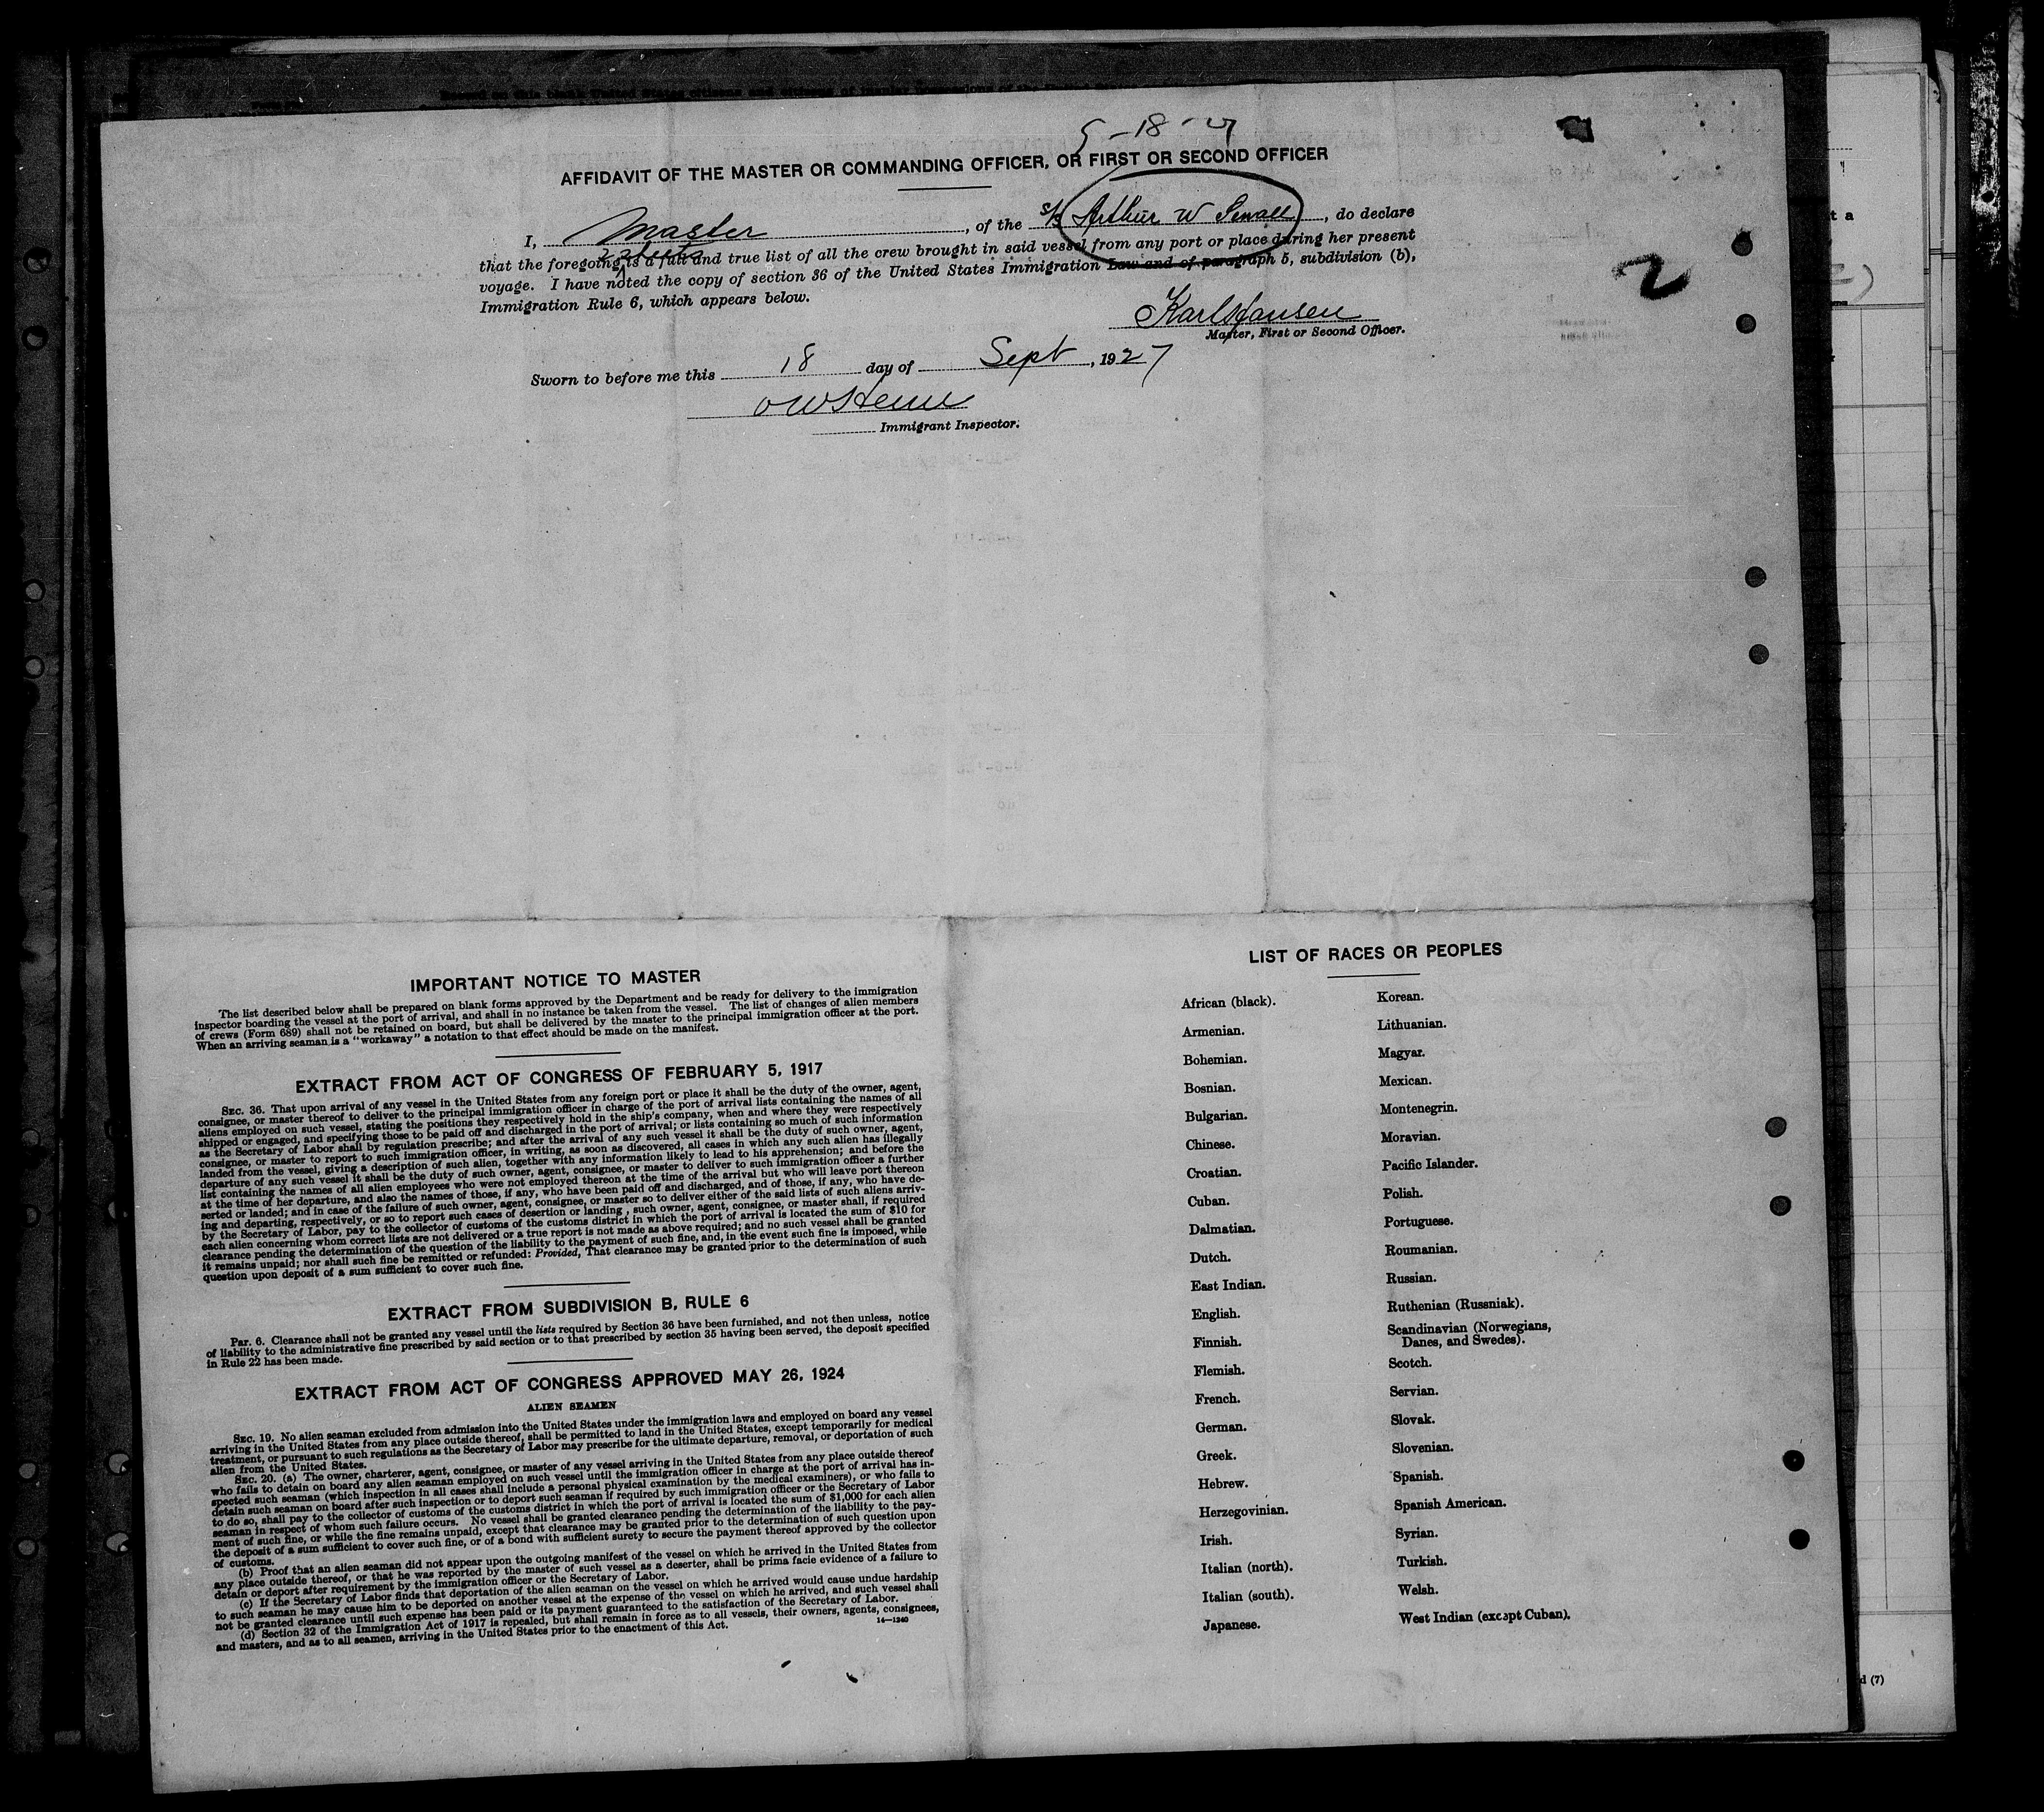 9-18-27
AFFIDAVIT OF THE MASTER OR COMMANDING OFFICER, OR FIRST OR SECOND OFFICER
I, Master, of the S/S Arthur W Sewall, do declare
that the foregoing is a full and true list of all the crew brought in said vessel from any port or place during her present
voyage. I have noted the copy of section 36 of the United States Immigration Law and of paragraph 5, subdivision (b),
Immigration Rule 6, which appears below.
Karl Hansen
Master, First or Second Officer.
2
Sworn to before me this 18 day of Sept, 1927
Immigrant Inspector.
IMPORTANT NOTICE TO MASTER
The list described below shall be prepared on blank forms approved by the Department and be ready for delivery to the immigration
inspector boarding the vessel at the port of arrival, and shall in no instance be taken from the vessel. The list of changes of alien members
of crews (Form 689) shall not be retained on board, but shall be delivered by the master to the principal immigration officer at the port.
When an arriving seaman is a "workaway" a notation to that effect should be made on the manifest.
EXTRACT FROM ACT OF CONGRESS OF FEBRUARY 5, 1917
SEC. 36. That upon arrival of any vessel in the United States from any foreign port or place it shall be the duty of the owner, agent,
consignee, or master thereof to deliver to the principal immigration officer in charge of the port of arrival lists containing the names of all
aliens employed on such vessel, stating the positions they respectively hold in the ship's company, when and where they were respectively
shipped or engaged, and specifying those to be paid off and discharged in the port of arrival; or lists containing so much of such information
as the Secretary of Labor shall by regulation prescribe; and after the arrival of any such vessel it shall be the duty of such owner, agent,
consignee, or master to report to such immigration officer, in writing, as soon as discovered, all cases in which any such alien has illegally
landed from the vessel, giving a description of such alien, together with any information likely to lead to his apprehension; and before the
departure of any such vessel it shall be the duty of such owner, agent, consignee, or master to deliver to such immigration officer a further
list containing the names of all alien employees who were not employed thereon at the time of the arrival but who will leave port thereon
at the time of her departure, and also the names of those, if any, who have been paid off and discharged, and of those, if any, who have de-
serted or landed; and in case of the failure of such owner, agent, consignee, or master so to deliver either of the said lists of such aliens arriv-
ing and departing, respectively, or so to report such cases of desertion or landing, such owner, agent, consignee, or master shall, if required
by the Secretary of Labor, pay to the collector of customs of the customs district in which the port of arrival is located the sum of $10 for
each alien concerning whom correct lists are not delivered or a true report is not made as above required; and no such vessel shall be granted
clearance pending the determination of the question of the liability to the payment of such fine, and, in the event such fine is imposed, while
it remains unpaid; nor shall such fine be remitted or refunded: Provided, That clearance may be granted prior to the determination of such
question upon deposit of a sum sufficient to cover such fine.
EXTRACT FROM SUBDIVISION B, RULE 6
Par. 6. Clearance shall not be granted any vessel until the lists required by Section 36 have been furnished, and not then unless, notice
of liability to the administrative fine prescribed by said section or to that prescribed by section 35 having been served, the deposit specified
in Rule 22 has been made.
EXTRACT FROM ACT OF CONGRESS APPROVED MAY 26, 1924
ALIEN SEAMEN
SEC. 19. No alien seaman excluded from admission into the United States under the immigration laws and employed on board any vessel
arriving in the United States from any place outside thereof, shall be permitted to land in the United States, except temporarily for medical
treatment, or pursuant to such regulations as the Secretary of Labor may prescribe for the ultimate departure, removal, or deportation of such
alien from the United States.
SEC. 20. (a) The owner, charterer, agent, consignee, or master of any vessel arriving in the United States from any place outside thereof
who fails to detain on board any alien seaman employed on such vessel until the immigration officer in charge at the port of arrival has in-
spected such seaman (which inspection in all cases shall include a personal physical examination by the medical examiners), or who fails to
detain such seaman on board after such inspection or to deport such seaman if required by such immigration officer or the Secretary of Labor
to do so, shall pay to the collector of customs of the customs district in which the port of arrival is located the sum of $1,000 for each alien
seaman in respect of whom such failure occurs. No vessel shall be granted clearance pending the determination of the liability to the pay-
ment of such fine, or while the fine remains unpaid, except that clearance may be granted prior to the determination of such question upon
the deposit of a sum sufficient to cover such fine, or of a bond with sufficient surety to secure the payment thereof approved by the collector
of customs.
(b) Proof that an alien seaman did not appear upon the outgoing manifest of the vessel on which he arrived in the United States from
any place outside thereof, or that he was reported by the master of such vessel as a deserter, shall be prima facie evidence of a failure to
detain or deport after requirement by the immigration officer or the Secretary of Labor.
(c) If the Secretary of Labor finds that deportation of the alien seaman on the vessel on which he arrived would cause undue hardship
to such seaman he may cause him to be deported on another vessel at the expense of the vessel on which he arrived, and such vessel shall
not be granted clearance until such expense has been paid or its payment guaranteed to the satisfaction of the Secretary of Labor.
(d) Section 32 of the Immigration Act of 1917 is repealed, but shall remain in force as to all vessels, their owners, agents, consignees,
and masters, and as to all seamen, arriving in the United States prior to the enactment of this Act.
14—1240
LIST OF RACES OR PEOPLES
African (black).
Armenian.
Bohemian.
Bosnian.
Bulgarian.
Chinese.
Croatian.
Cuban.
Dalmatian.
Dutch.
East Indian.
English.
Finnish.
Flemish.
French.
German.
Greek.
Hebrew.
Herzegovinian.
Irish.
Italian (north).
Italian (south).
Japanese.
Korean.
Lithuanian.
Magyar.
Mexican.
Montenegrin.
Moravian.
Pacific Islander.
Polish.
Portuguese.
Roumanian.
Russian.
Ruthenian (Russniak).
Scandinavian (Norwegians,
Danes, and Swedes).
Scotch.
Servian.
Slovak.
Slovenian.
Spanish.
Spanish American.
Syrian.
Turkish.
Welsh.
West Indian (except Cuban).
d (7)